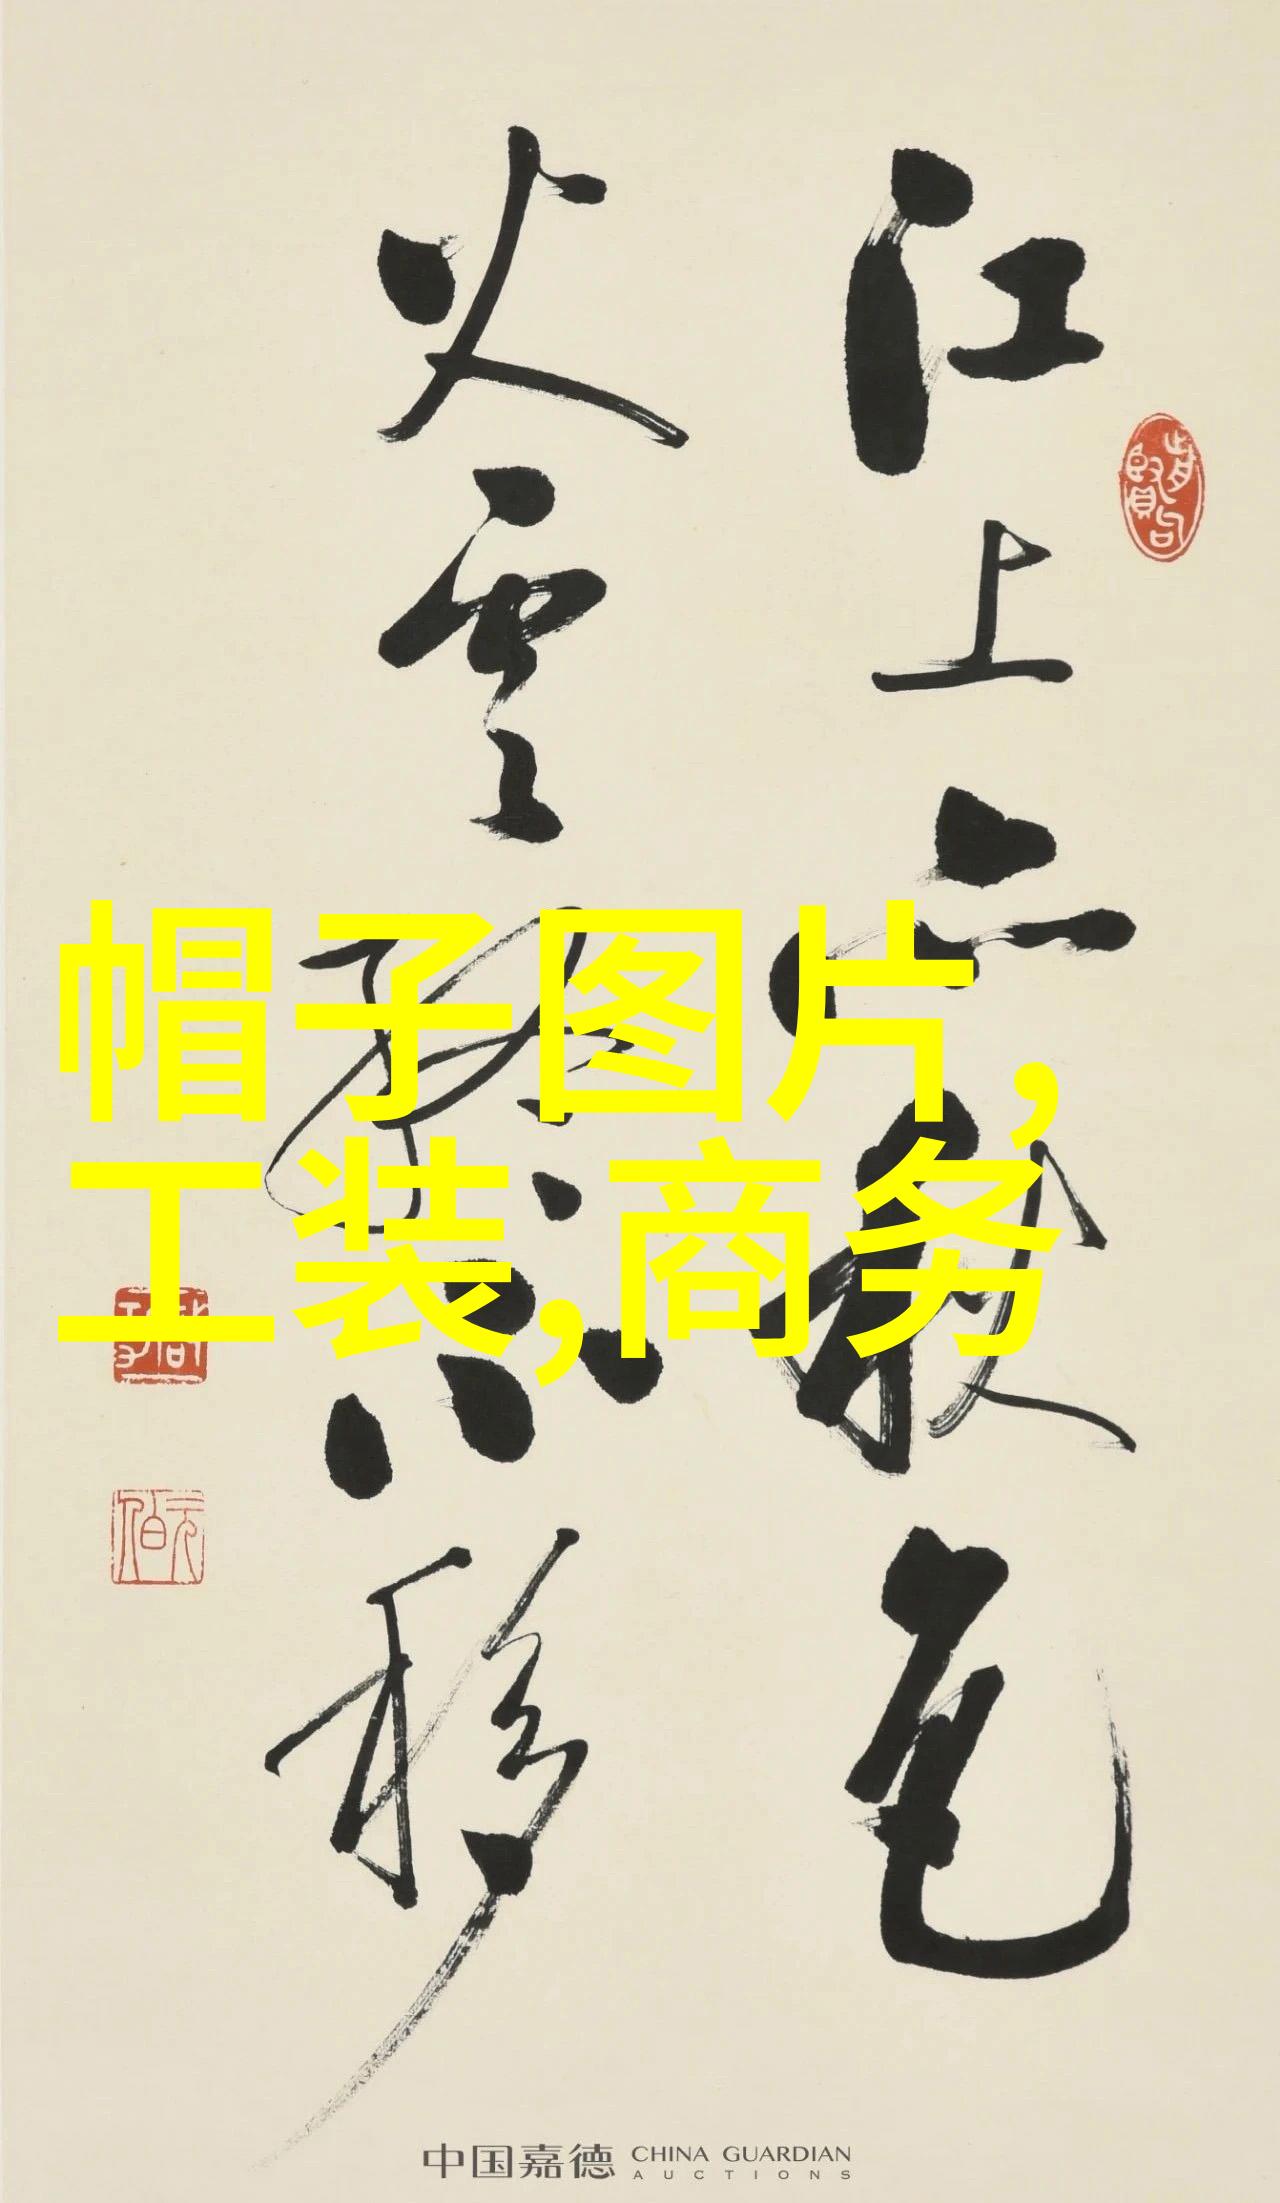 江上亦秋色
火雲終不移
帽子图片,
工装,商务
中国嘉德 CHINA GUARDIAN
AUCTIONS